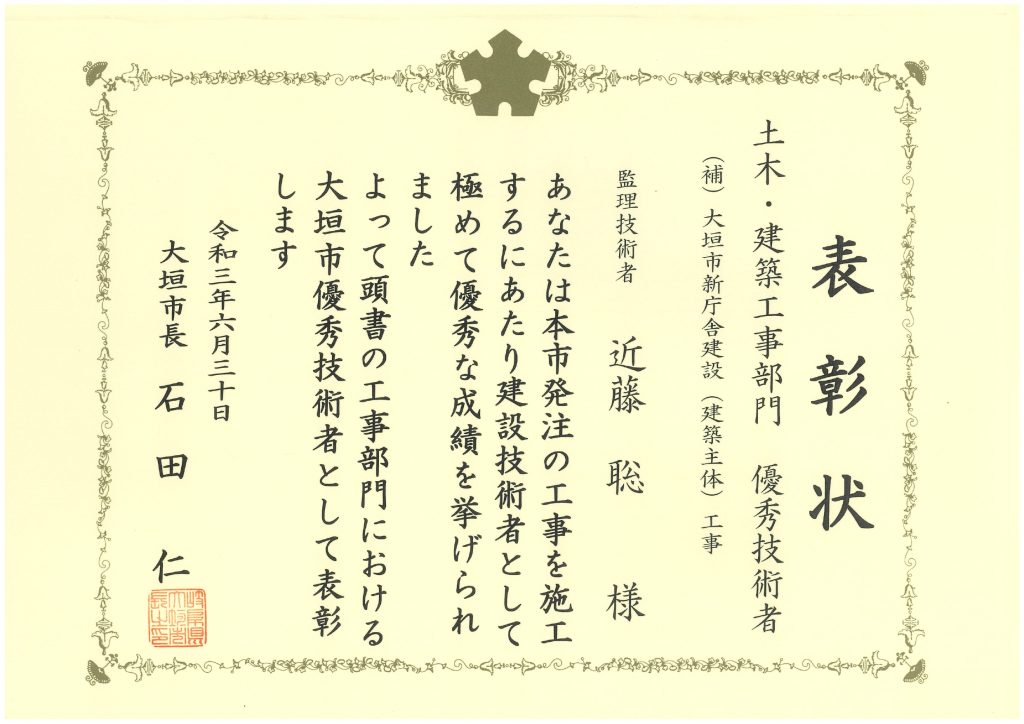 表彰状
土木・建築工事部門 優秀技術者
(補)大垣市新庁舎建設(建築主体)工事
監理技術者 近藤 聡 様
あなたは本市発注の工事を施工
するにあたり建設技術者として
極めて優秀な成績を挙げられ
ました
よって頭書の工事部門における
大垣市優秀技術者として表彰
します
令和三年六月三十日
大垣市長 石田 仁